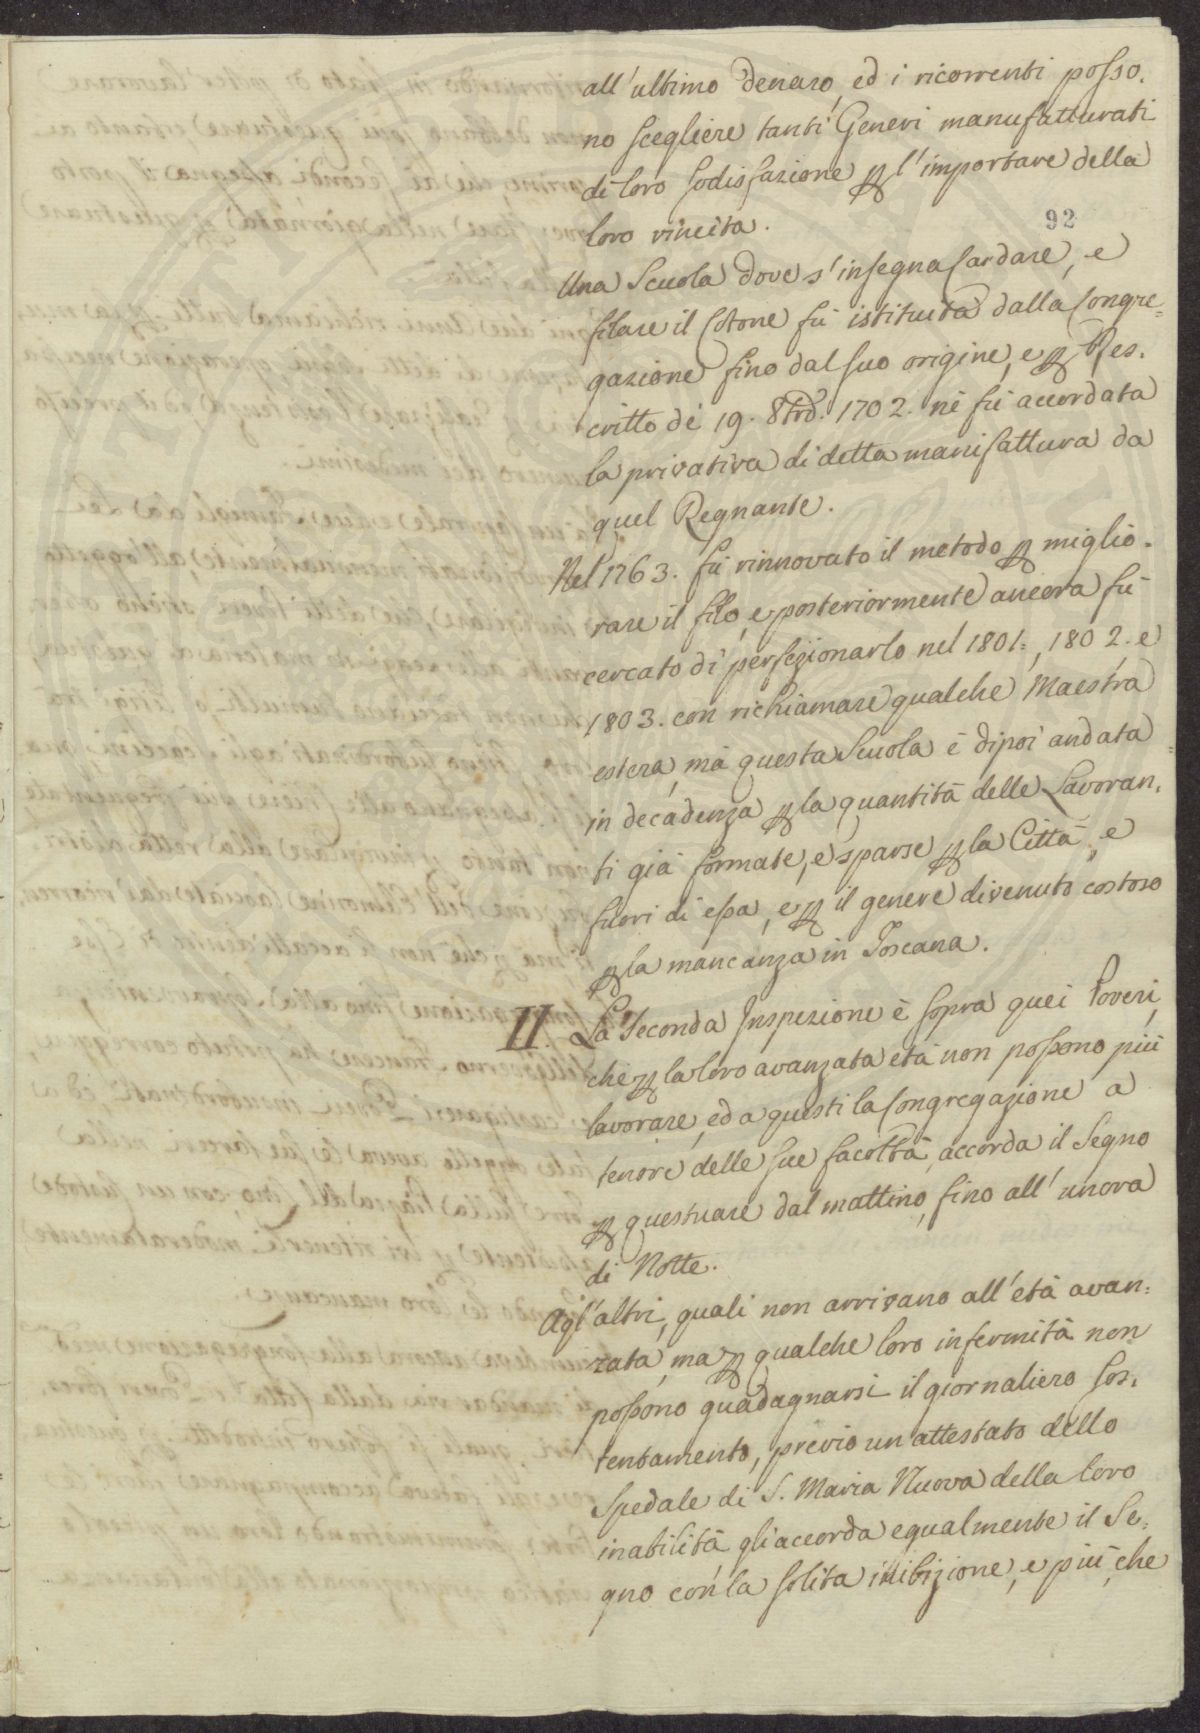 all'ultimo denaro, ed i ricorrenti posso=
no scegliere tanti Generi manufatturati
di loro sodisfazione p l'importare della
loro vincita.
92
Una Scuola dove s'insegna Cardare, e
filare il Cotone fù istituita dalla Congre=
gazione fino dal suo origine, e p Res=
critto de' 19. 1702. nè fù accordata
la privativa di detta manifattura da
quel Regnante.
Nel 1763. fù rinnovato il metodo p miglio=
rare il filo, e posteriormente ancora fù
cercato di perfezionarlo nel 1801., 1802. e
1803. con richiamare qualche Maestra
estera, mà questa Scuola è dipoi andata
in decadenza p la quantità delle Lavoran=
ti già formate, e sparse p la Città, e
fuori di essa, e p il genere divenuto costoso
p la mancanza in Toscana.
II. La Seconda Inspezione è sopra quei Poveri,
che p la loro avanzata età non possono più
lavorare, ed a questi la Congregazione a
tenore delle sue facoltà accorda il Segno
p questuare dal mattino, fino all'un'ora
di Notte.
Agl'altri, quali non arrivano all'età avan=
zata, ma p qualche loro infermità non
possono guadagnarsi il giornaliero sos=
tentamento, previo un attestato dello
Spedale di S. Maria Nuova della loro
inabilità gli accorda egualmente il Se=
gno con la solita inibizione, e più che